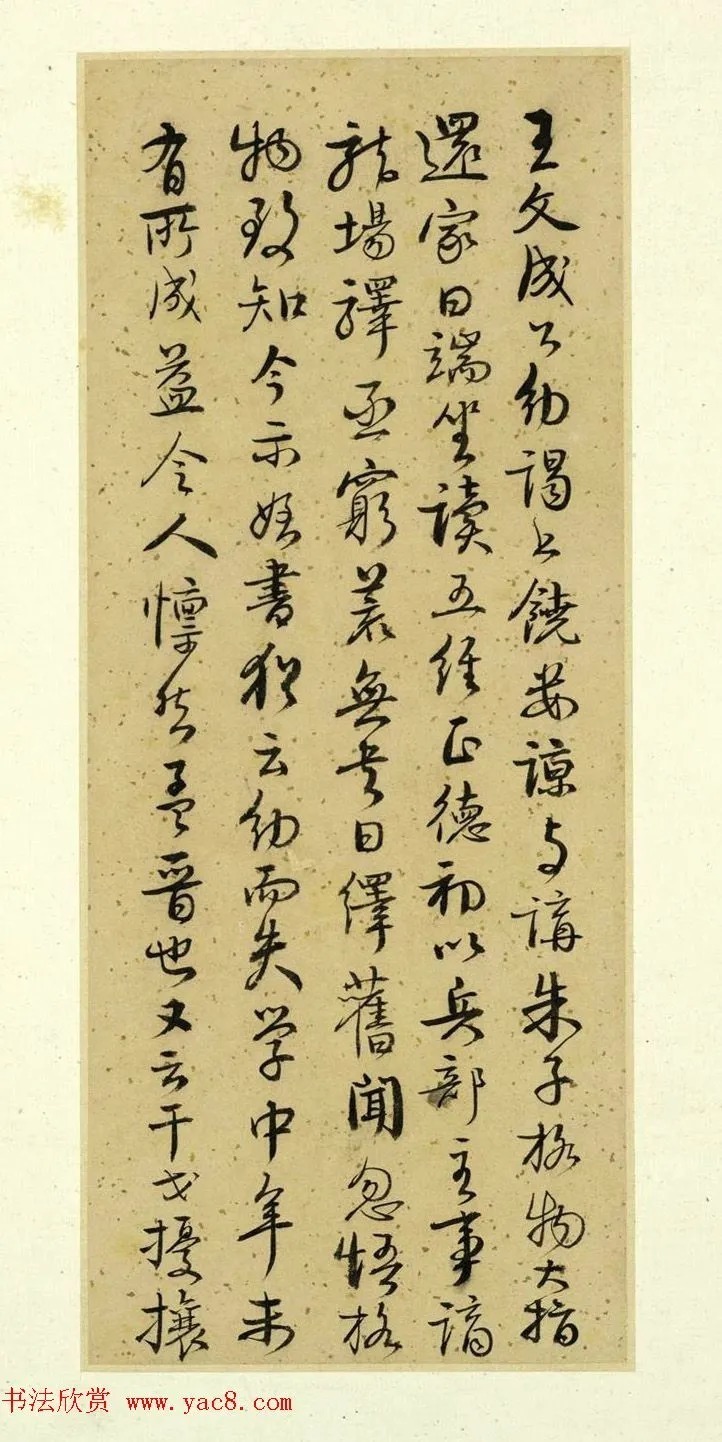 王文成公幼謁上饒婁諒与講朱子格物大指
還家日端坐讀五經正德初以兵部主事謫
龍場驛丞窮荒無書日繹舊聞忽悟格
物致知今示姪書猶云幼而失学中年未
有所成益令人懔然孟晋也又云干戈擾攘
书法欣赏 www.yac8.com